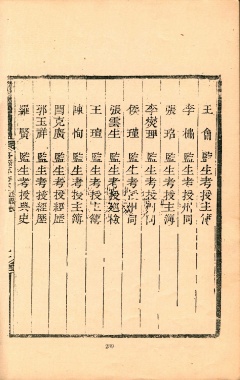 王 監生考授主簿
李 監生考授州同
張 監生考授主簿
李 理 監生考授州同
侯瑾 監生考授州同
張雲生 監生考授巡檢
王瑄 監生考授主簿
陳恂 監生考授主簿
閆克廣 監生考授經歷
郭玉祥 監生考授經歷
羅賢 監生考授典史